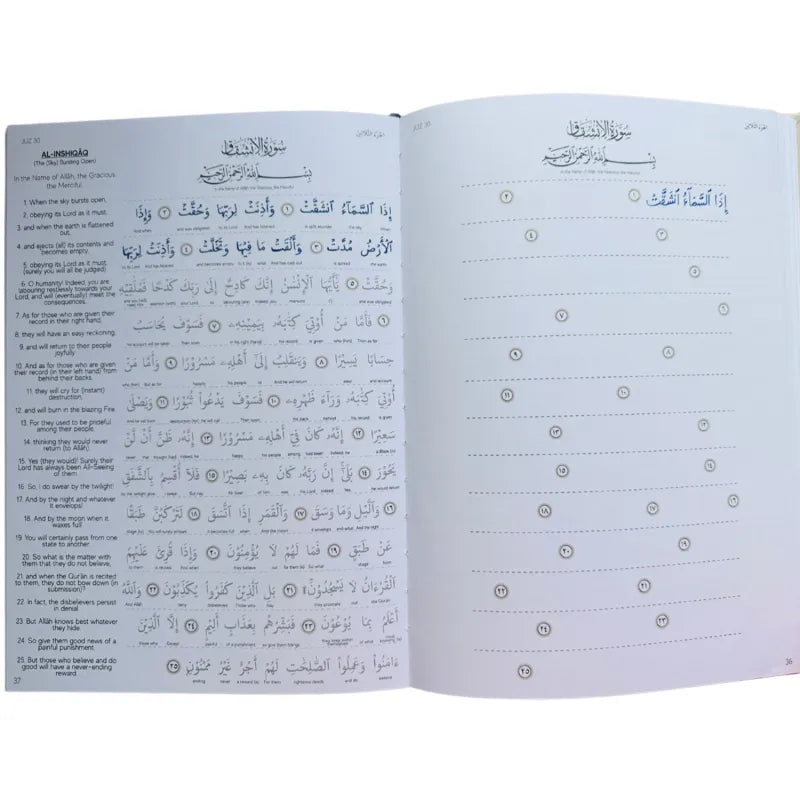 JUZ 30
الجزء الثلاثين
AL-INSHIQĀQ
(The (Sky) Bursting Open)
In the Name of Allāh, the Gracious
the Merciful.
1. When the sky bursts open,
2. obeying its Lord as it must,
3. and when the earth is flattened
out,
4. and ejects (all) its contents and
becomes empty,
5. obeying its Lord as it must,
(surely you will all be judged)
6. O humanity! Indeed, you are
labouring restlessly towards your
Lord, and will (eventually) meet the
consequences.
7. As for those who are given their
record in their right hand,
8. they will have an easy reckoning,
9. and will return to their people
joyfully.
10. And as for those who are given
their record (in their left hand) from
behind their backs,
11. they will cry for (instant)
destruction,
12. and will burn in the blazing Fire.
13. For they used to be prideful
among their people,
14. thinking they would never
return (to Allāh).
15. Yes (they would)! Surely their
Lord has always been All-Seeing
of them.
16. So, I do swear by the twilight!
17. And by the night and whatever
it envelops!
18. And by the moon when it
waxes full!
19. You will certainly pass from one
state to another.
20. So what is the matter with
them that they do not believe,
21. and when the Qur'ān is recited
to them, they do not bow down (in
submission)?
22. In fact, the disbelievers persist
in denial.
23. But Allāh knows best whatever
they hide.
24. So give them good news of a
painful punishment.
25. But those who believe and do
good will have a never-ending
reward.
37
سورة الانشقاق
بسم الله الرحمن الرحيم
In the Name of Allah, the Gracious, the Merciful
إِذَا ٱلسَّمَآءُ ٱنشَقَّتْ ١ وَأَذِنَتْ لِرَبِّهَا وَحُقَّتْ ٢ وَإِذَا
ٱلْأَرْضُ مُدَّتْ ٣ وَأَلْقَتْ مَا فِيهَا وَتَخَلَّتْ ٤ وَأَذِنَتْ لِرَبِّهَا
وَحُقَّتْ ٥ يَٰٓأَيُّهَا ٱلْإِنسَٰنُ إِنَّكَ كَادِحٌ إِلَىٰ رَبِّكَ كَدْحًا فَمُلَٰقِيهِ
٦ فَأَمَّا مَنْ أُوتِىَ كِتَٰبَهُۥ بِيَمِينِهِۦ ٧ فَسَوْفَ يُحَاسَبُ
حِسَابًا يَسِيرًا ٨ وَيَنقَلِبُ إِلَىٰٓ أَهْلِهِۦ مَسْرُورًا ٩ وَأَمَّا مَنْ
أُوتِىَ كِتَٰبَهُۥ وَرَآءَ ظَهْرِهِۦ ١٠ فَسَوْفَ يَدْعُوا۟ ثُبُورًا ١١ وَيَصْلَىٰ
سَعِيرًا ١٢ إِنَّهُۥ كَانَ فِىٓ أَهْلِهِۦ مَسْرُورًا ١٣ إِنَّهُۥ ظَنَّ أَن لَّن
يَحُورَ ١٤ بَلَىٰٓ إِنَّ رَبَّهُۥ كَانَ بِهِۦ بَصِيرًا ١٥ فَلَآ أُقْسِمُ بِٱلشَّفَقِ
١٦ وَٱلَّيْلِ وَمَا وَسَقَ ١٧ وَٱلْقَمَرِ إِذَا ٱتَّسَقَ ١٨ لَتَرْكَبُنَّ طَبَقًا
عَن طَبَقٍ ١٩ فَمَا لَهُمْ لَا يُؤْمِنُونَ ٢٠ وَإِذَا قُرِئَ عَلَيْهِمُ
ٱلْقُرْءَانُ لَا يَسْجُدُونَ ۩ ٢١ بَلِ ٱلَّذِينَ كَفَرُوا۟ يُكَذِّبُونَ ٢٢ وَٱللَّهُ
أَعْلَمُ بِمَا يُوعُونَ ٢٣ فَبَشِّرْهُم بِعَذَابٍ أَلِيمٍ ٢٤ إِلَّا ٱلَّذِينَ
ءَامَنُوا۟ وَعَمِلُوا۟ ٱلصَّٰلِحَٰتِ لَهُمْ أَجْرٌ غَيْرُ مَمْنُونٍۭ ٢٥
JUZ 30
الجزء الثلاثين
سورة الانشقاق
بسم الله الرحمن الرحيم
In the Name of Allah, the Gracious, the Merciful
إِذَا ٱلسَّمَآءُ ٱنشَقَّتْ ١ ٢
٣ ٤
٥
٦ ٧
٨ ٩
١٠ ١١
١٢ ١٣
١٤ ١٥
١٦ ١٧ ١٨
١٩ ٢٠
٢١ ٢٢
٢٣ ٢٤
٢٥
36